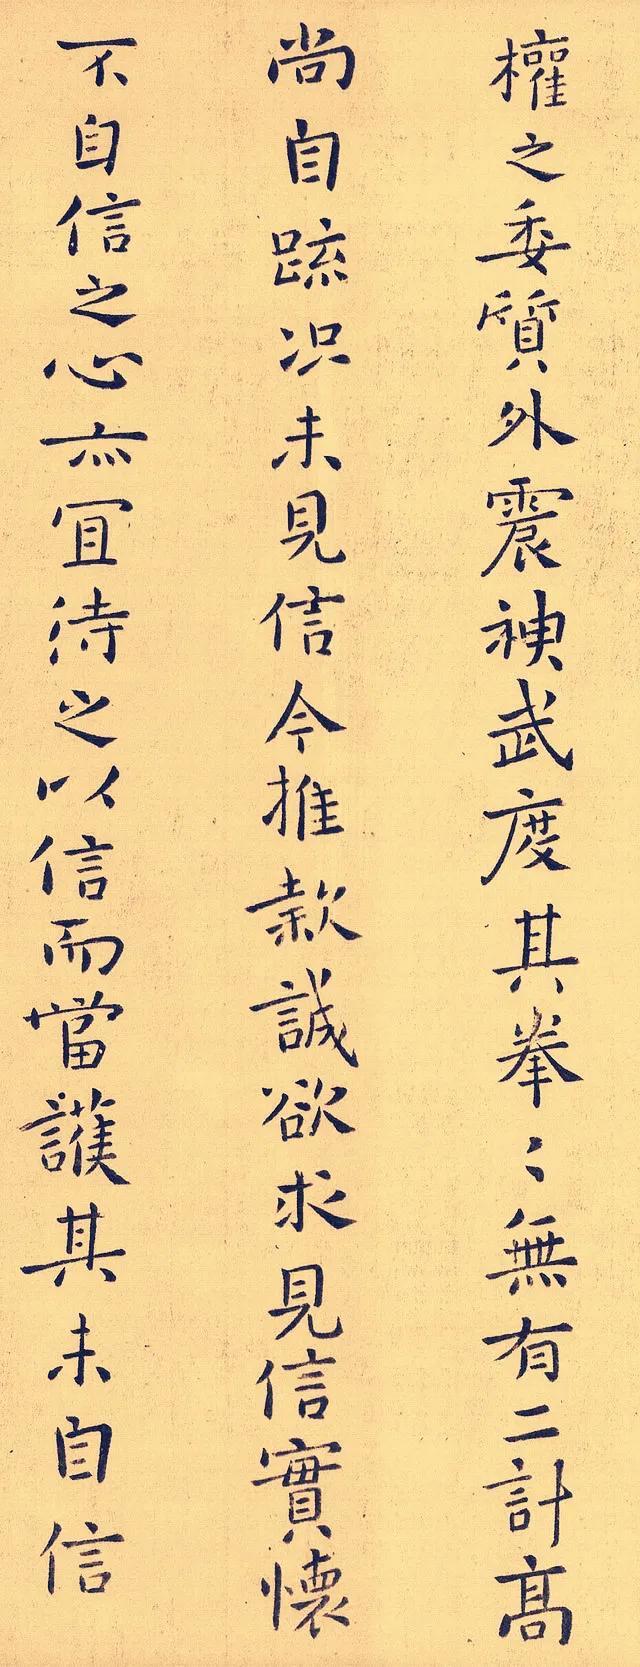 權之委質外震神武度其拳〻無有二計高
尚自疏況未見信今推款誠欲求見信實懷
不自信之心亦宜待之以信而當護其未自信